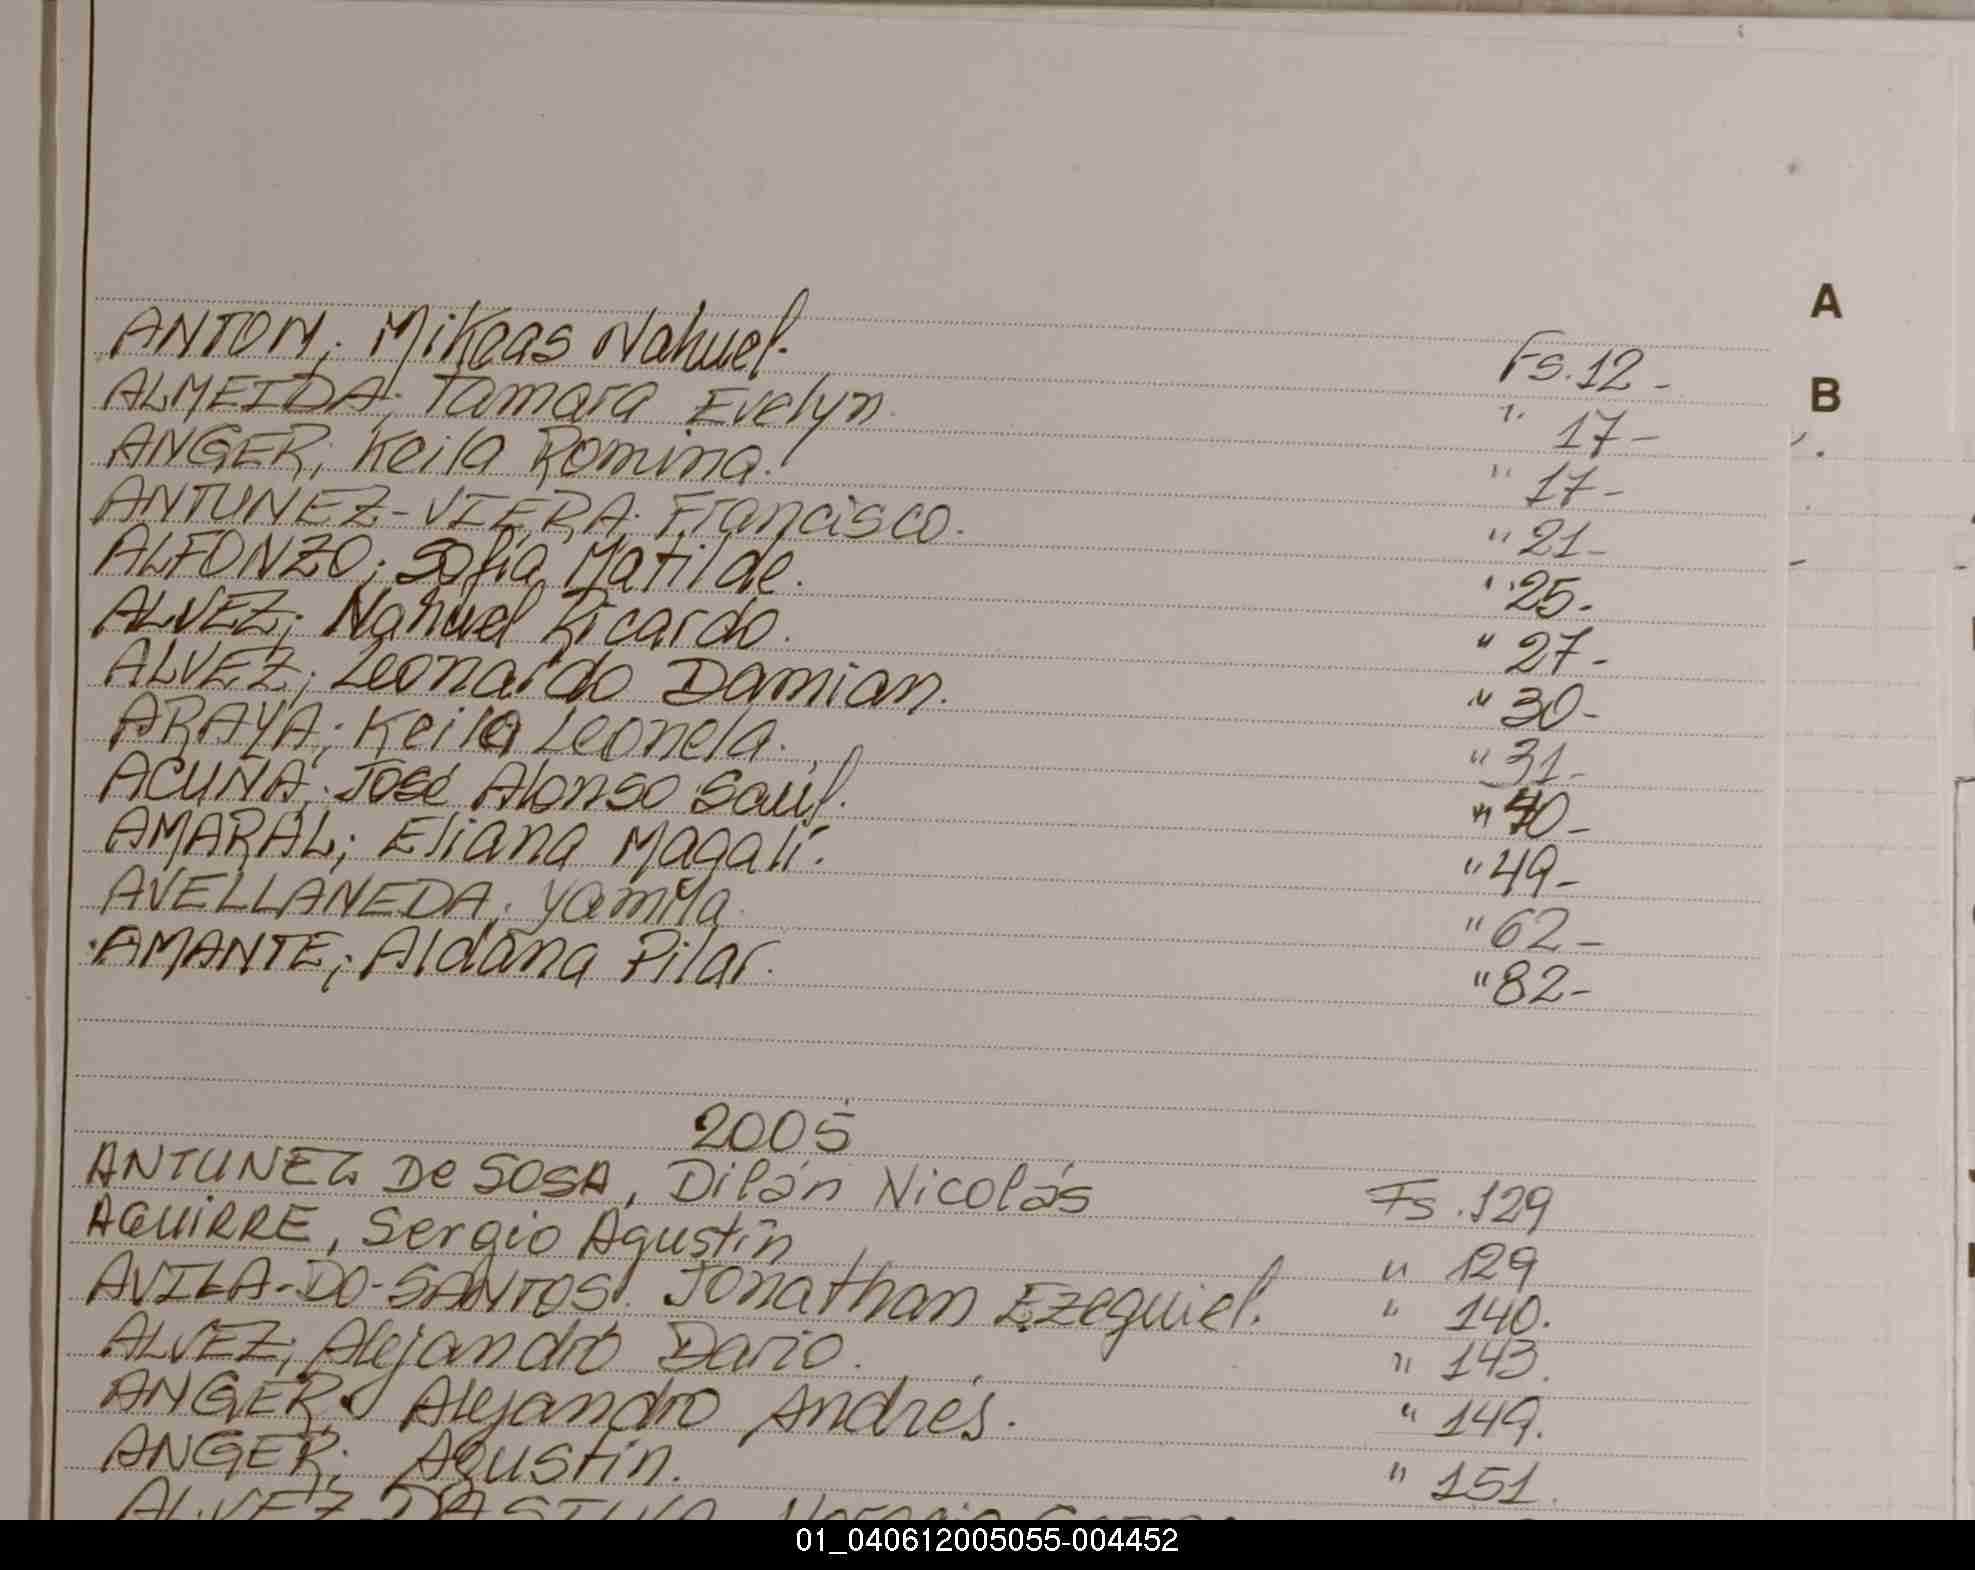 A
ANTON; Mikeas Nahuel. Fs. 12-
B
ALMEIDA; Tamara Evelyn. " 17-
ANGER; Keila Romina. " 17-
ANTUNEZ-VIERA. Francisco. " 21-
ALFONZO; Sofía Matilde. " 25.
ALVEZ; Nahuel Ricardo. " 27-
ALVEZ; Leonardo Damian. " 30-
ARAYA; Keila Leonela. " 31-
ACUÑA; José Alonso Saúl. " 40-
AMARAL; Eliana Magalí. " 49-
AVELLANEDA; Yamila. " 62-
AMANTE; Aldana Pilar. " 82-
2005
ANTUNEZ De SOSA, Dilán Nicolás Fs. 129
AGUIRRE, Sergio Agustín " 129
AVILA-DO-SANTOS. Jonathan Ezequiel. " 140.
ALVEZ; Alejandro Dario. " 143.
ANGER. Alejandro Andrés. " 149.
ANGER; Agustín. " 151.
ALVEZ
01_040612005055-004452